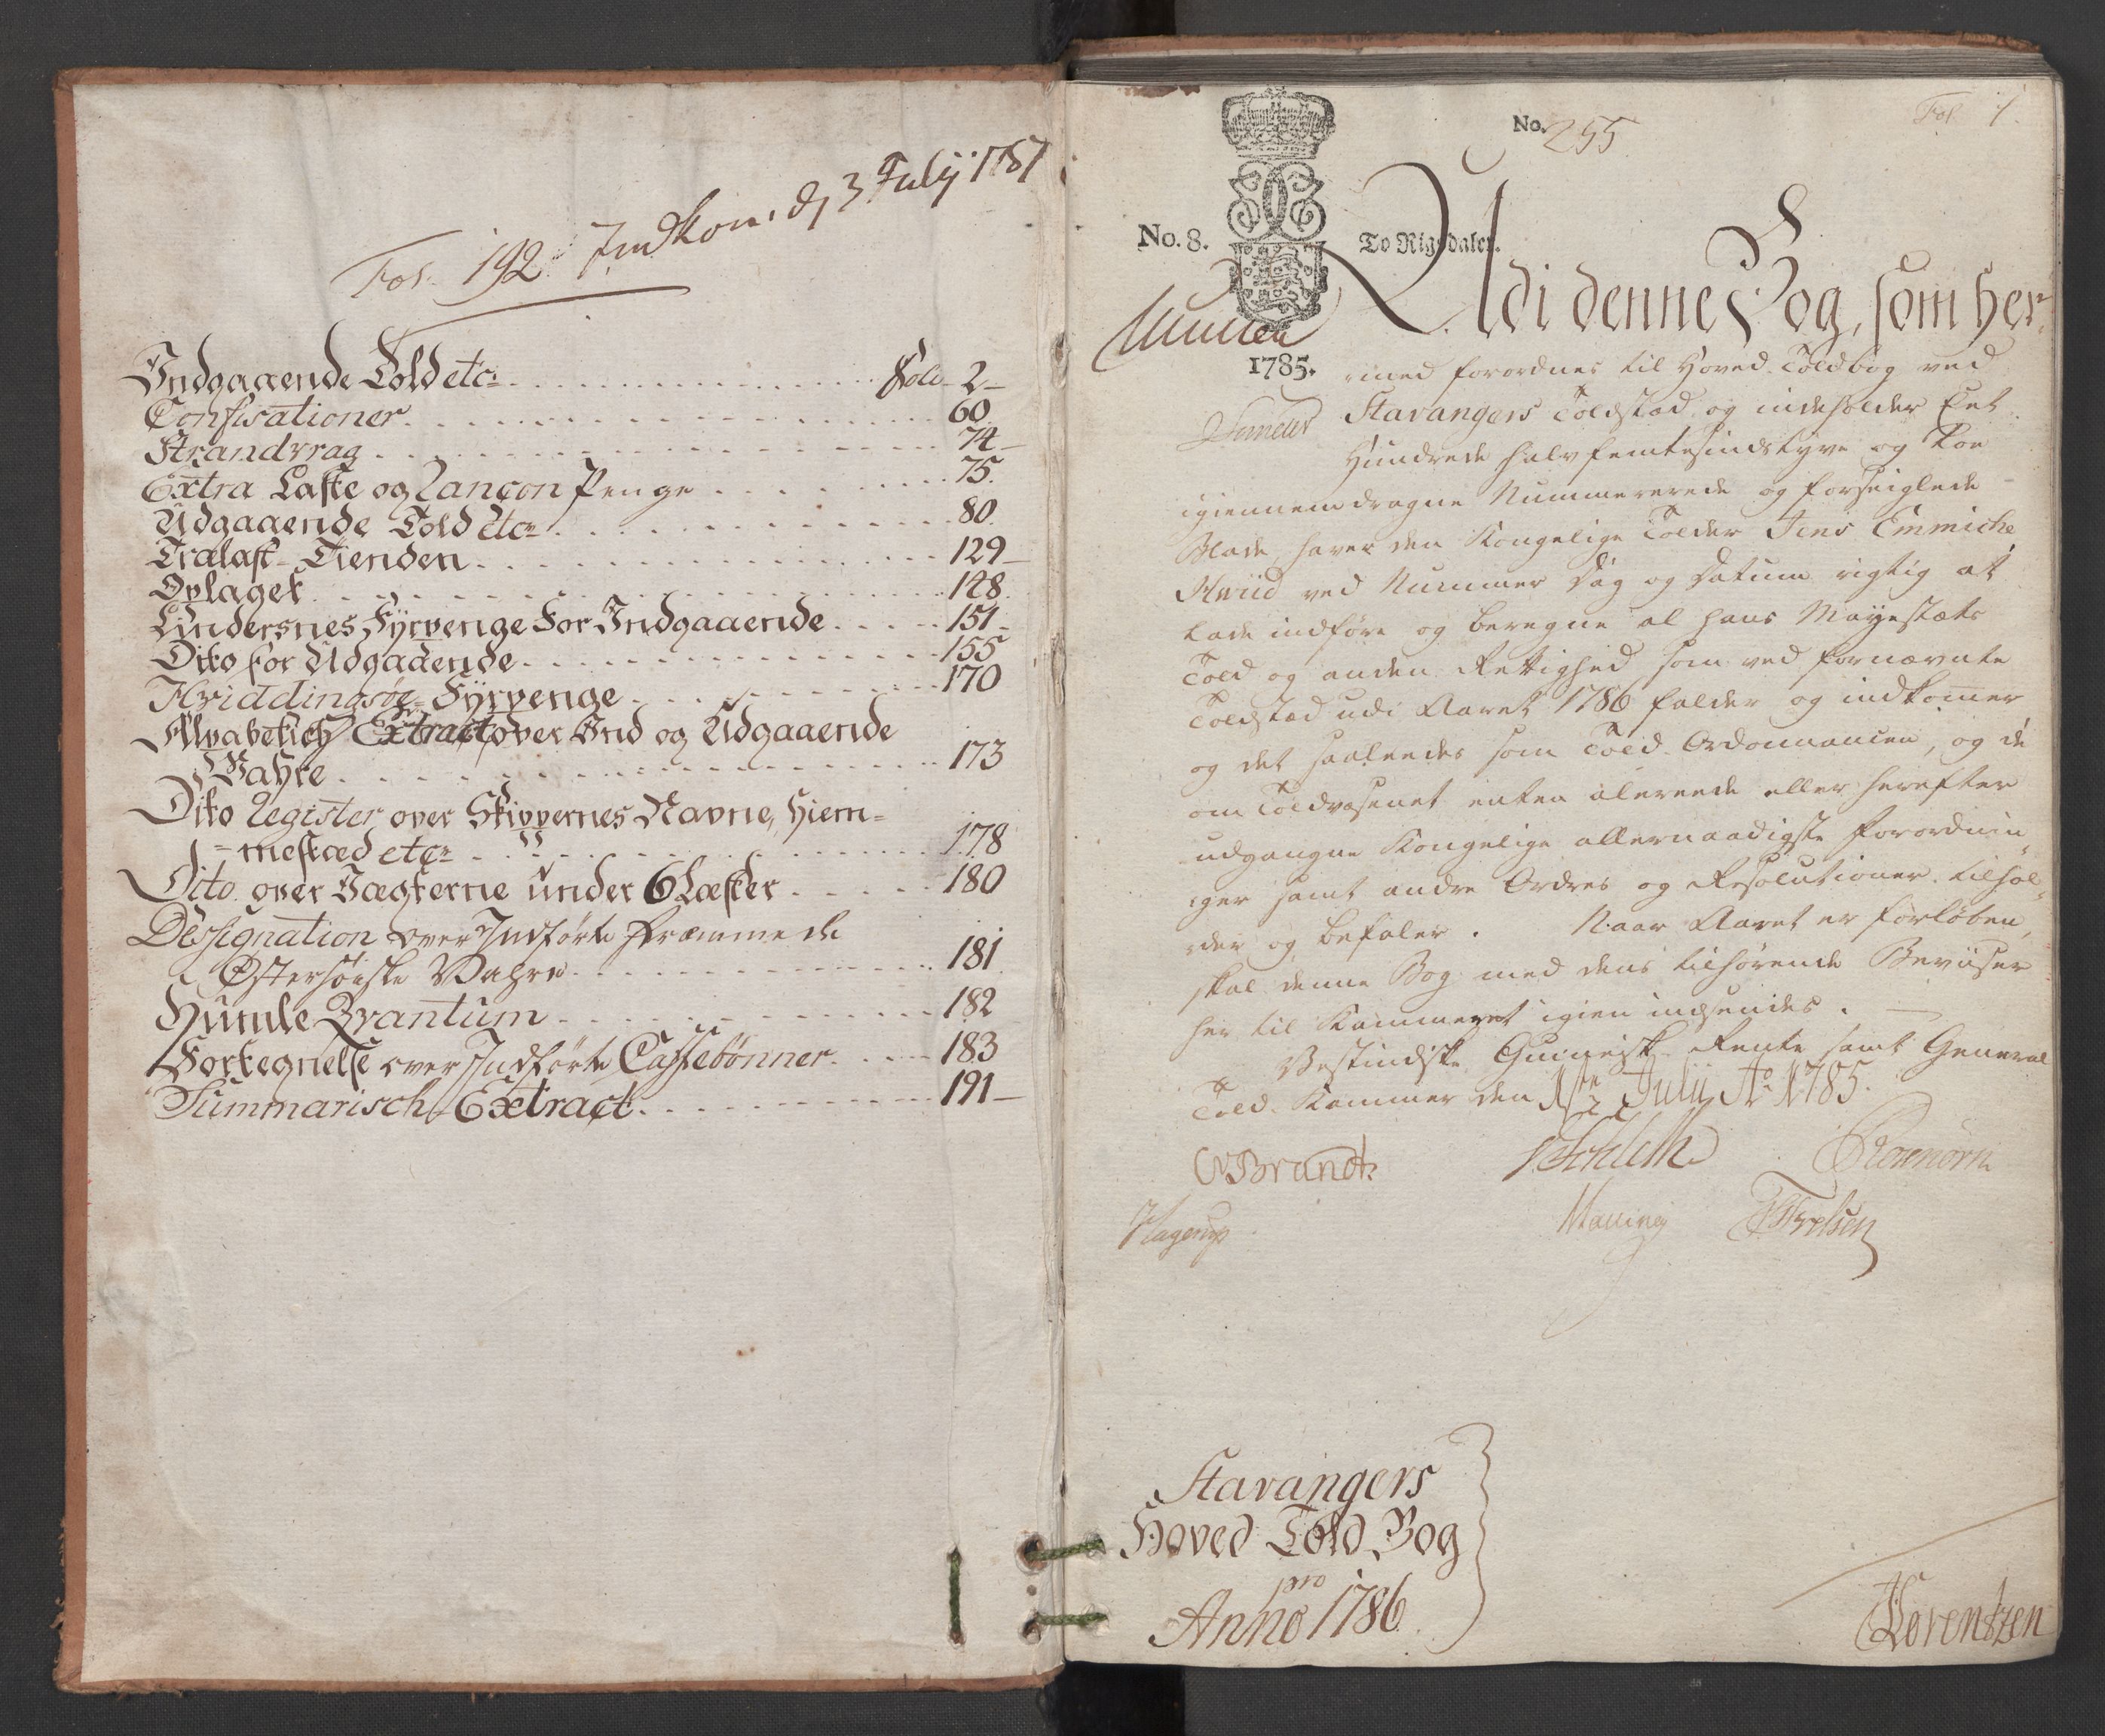 Fol. 192 Indkom: d, 3 Julij 1787
Indgaaende Told etc: Folio 2
Confisationer 60
Strandvrag 74
Extra Laste og Rançon Penge 75.
Udgaaende Told etc: 80
Trælast-Tienden 129
Oplaget 148
Lindersnes Fyrpenge For Indgaaende 151
Dito for Udgaaende 155
Hviddingsøe-Fyrpenge 170
Alpabetisch Extract over Ind og Udgaaende
Vahre 173
Dito Register over Skippernes Navne, Hiem=
=mestæd etc: 178
Dito over Jægterne under 6 Læster 180
Dessignation over Indførte fræmmede
Østersøiske Vahre 181
Humle Qvantum 182
Fortegnelse over Indførte Caffebønner 183
Summarisch Extract 191
Fol 1.
No. 255
No. 8.
To Rigsdaler.
1785.
Udi denne Bog, som her
med forordnes til Hoved-Toldbog ved
Stavangers Toldsted og indeholder Eet
Hundrede halvfemtesindstyve og Toe
igiennemdragne Nummererede og forseiglede
Blade, haver den Kongelige Tolder Jens Emmiche
Hvid ved Nummer Dag og Datum rigtig at
lade indføre og beregne al hans Mayestæts
Told og anden Rettighed som ved fornævnte
Toldsted udi Aaret 1786 falder og indkommer
og det saaledes som Told-Ordonnancen, og de
om Toldvæsenet enten allereede eller herefter
udgangne Kongelige allernaadigste Forordnin
ger samt andre Ordres og Resolutioner tilhol
der og befaler. Naar Aaret er forløben,
skal denne Bog med dens tilhørende Beviiser
her til Kammeret igien indsendes.
Vestindiske Guineisk Rente samt General
Told-Kammer den 1te Julij Ao 1785.
CVBrandt
Rosenørn
Hagerup
Malling
Stavangers
Hoved Told Bog
pro
Anno 1786
Lorentzen